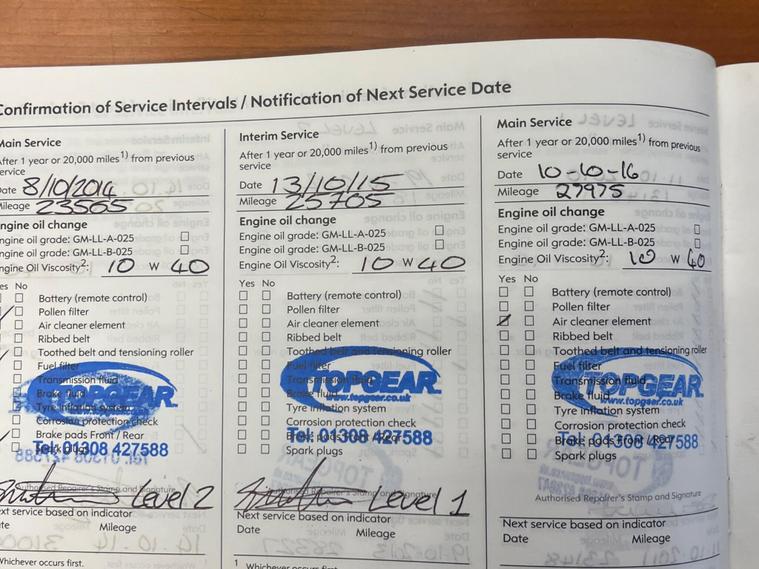 Confirmation of Service Intervals / Notification of Next Service Date
Main Service
After 1 year or 20,000 miles1) from previous
service
Date 8/10/2014
Mileage 23565
Engine oil change
Engine oil grade: GM-LL-A-025
GM-LL-B-025
Engine Oil Viscosity2: 10 W 40
Yes No
Battery (remote control)
Pollen filter
Air cleaner element
Ribbed belt
Toothed belt and tensioning roller
Fuel filter
Transmission fluid
Brake fluid
Tyre inflation system
Corrosion protection check
Brake pads Front / Rear
TOPGEAR
Tel: 01308 427588
Level 2
Next service based on indicator
Date Mileage
Whichever occurs first.
Interim Service
After 1 year or 20,000 miles1) from previous
service
Date 13/10/15
Mileage 25705
Engine oil change
Engine oil grade: GM-LL-A-025
GM-LL-B-025
Engine Oil Viscosity2: 10 W 40
Yes No
Battery (remote control)
Pollen filter
Air cleaner element
Ribbed belt
Toothed belt and tensioning roller
Fuel filter
Transmission fluid
Brake fluid
Tyre inflation system
Corrosion protection check
Brake pads Front / Rear
Spark plugs
TOPGEAR
www.topgear.co.uk
Tel: 01308 427588
Level 1
Next service based on indicator
Date Mileage
1 Whichever occurs first.
Main Service
After 1 year or 20,000 miles1) from previous
service
Date 10-10-16
Mileage 27975
Engine oil change
Engine oil grade: GM-LL-A-025
GM-LL-B-025
Engine Oil Viscosity2: 10 W 40
Yes No
Battery (remote control)
Pollen filter
Air cleaner element
Ribbed belt
Toothed belt and tensioning roller
Fuel filter
Transmission fluid
Brake fluid
Tyre inflation system
Corrosion protection check
Brake pads Front / Rear
Spark plugs
TOPGEAR
www.topgear.co.uk
Tel: 01308 427588
Authorised Repairer's Stamp and Signature
Next service based on indicator
Date Mileage